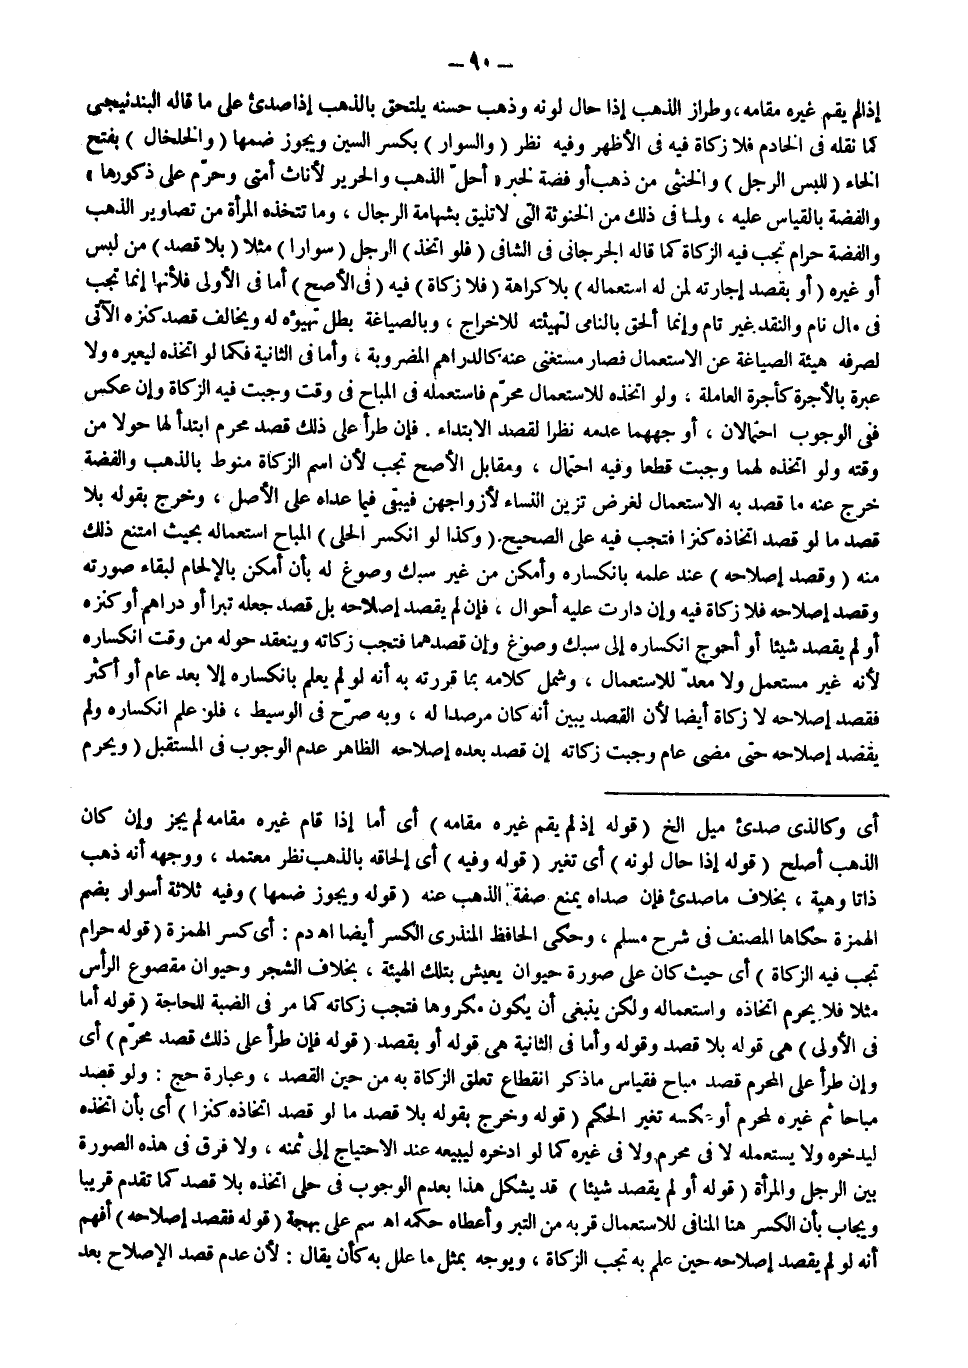 — ٩٠ —
إذالم يقم غيره مقامه، وطراز الذهب إذا حال لونه وذهب حسنه يلتحق بالذهب إذاصدئ على ما قاله البندنيجى
كما نقله فى الخادم فلا زكاة فيه فى الأظهر وفيه نظر ( والسوار ) بكسر السين ويجوز ضمها ( والخلخال ) بفتح
الخاء ( للبس الرجل ) والخنثى من ذهب أو فضة لخبر « أحلّ الذهب والحرير لأناث أمتى وحرّم على ذكورها »
والفضة بالقياس عليه ، ولما فى ذلك من الخنوثة التى لاتليق بشهامة الرجال ، وما تتخذه المرأة من تصاوير الذهب
والفضة حرام تجب فيه الزكاة كما قاله الجرجانى فى الشافى ( فلو اتخذ ) الرجل ( سوارا ) مثلا ( بلا قصد ) من لبس
أو غيره ( أو بقصد إجارته لمن له استعماله ) بلا كراهة ( فلا زكاة ) فيه ( فى الأصح ) أما فى الأولى فلأنها إنما تجب
فى مال نام والنقد غير تام وإنما ألحق بالنامى لتهيئته للاخراج ، وبالصياغة بطل تهيؤه له ويخالف قصد كنزه الآتى
لصرفه هيئة الصياغة عن الاستعمال فصار مستغنى عنه كالدراهم المضروبة ، وأما فى الثانية فكما لو اتخذه ليعيره ولا
عبرة بالأجرة كأجرة العاملة ، ولو اتخذه للاستعمال محرّم فاستعمله فى المباح فى وقت وجبت فيه الزكاة وإن عكس
ففى الوجوب احتمالان ، أو جههما عدمه نظرا لقصد الابتداء . فإن طرأ على ذلك قصد محرم ابتدأ لها حولا من
وقته ولو اتخذه لهما وجبت قطعا وفيه احتمال ، ومقابل الأصح تجب لأن اسم الزكاة منوط بالذهب والفضة
خرج عنه ما قصد به الاستعمال لغرض تزين النساء لأزواجهن فيبقى فيما عداه على الأصل ، وخرج بقوله بلا
قصد ما لو قصد اتخاذه كنزا فتجب فيه على الصحيح. ( وكذا لو انكسر الحلى ) المباح استعماله بحيث امتنع ذلك
منه ( وقصد إصلاحه ) عند علمه بانكساره وأمكن من غير سبك وصوغ له بأن أمكن بالإلحام لبقاء صورته
وقصد إصلاحه فلا زكاة فيه وإن دارت عليه أحوال ، فإن لم يقصد إصلاحه بل قصد جعله تبرا أو دراهم أو كنزه
أو لم يقصد شيئا أو أحوج انكساره إلى سبك وصوغ وإن قصدهما فتجب زكاته وينعقد حوله من وقت انكساره
لأنه غير مستعمل ولا معدّ للاستعمال ، وشمل كلامه بما قررته به أنه لو لم يعلم بانكساره إلا بعد عام أو أكثر
فقصد إصلاحه لا زكاة أيضا لأن القصد يبين أنه كان مرصدا له ، وبه صرّح فى الوسيط ، فلو علم انكساره ولم
يقصد إصلاحه حتى مضى عام وجبت زكاته إن قصد بعده إصلاحه الظاهر عدم الوجوب فى المستقبل ( ويحرم
أى وكالذى صدئ ميل الخ ( قوله إذ لم يقم غيره مقامه ) أى أما إذا قام غيره مقامه لم يجز وإن كان
الذهب أصلح ( قوله إذا حال لونه ) أى تغير ( قوله وفيه ) أى إلحاقه بالذهب نظر معتمد ، ووجهه أنه ذهب
ذاتا وهيئة ، بخلاف ماصدئ فإن صداه يمنع صفة الذهب عنه ( قوله ويجوز ضمها ) وفيه ثلاثة أسوار بضم
الهمزة حكاها المصنف فى شرح مسلم ، وحكى الحافظ المنذرى الكسر أيضا اه دم : أى كسر الهمزة ( قوله حرام
تجب فيه الزكاة ) أى حيث كان على صورة حيوان يعيش بتلك الهيئة ، بخلاف الشجر وحيوان مقصوع الرأس
مثلا فلا يحرم اتخاذه واستعماله ولكن ينبغى أن يكون مكروها فتجب زكاته كما مر فى الضبة للحاجة ( قوله أما
فى الأولى ) هى قوله بلا قصد وقوله وأما فى الثانية هى قوله أو بقصد ( قوله فإن طرأ على ذلك قصد محرّم ) أى
وإن طرأ على المحرم قصد مباح فقياس ماذكر انقطاع تعلق الزكاة به من حين القصد ، وعبارة حج : ولو قصد
مباحا ثم غيره لمحرم أو عكسه تغير الحكم ( قوله وخرج بقوله بلا قصد ما لو قصد اتخاذه كنزا ) أى بأن اتخذه
ليدخره ولا يستعمله لا فى محرم ولا فى غيره كما لو ادخره ليبيعه عند الاحتياج إلى ثمنه ، ولا فرق فى هذه الصورة
بين الرجل والمرأة ( قوله أو لم يقصد شيئا ) قد يشكل هذا بعدم الوجوب فى حلى اتخذه بلا قصد كما تقدم قريبا
ويجاب بأن الكسر هنا المنافى للاستعمال قربه من التبر وأعطاه حكمه اه سم على بهجة ( قوله فقصد إصلاحه ) أفهم
أنه لو لم يقصد إصلاحه حين علم به تجب الزكاة ، ويوجه بمثل ما علل به كأن يقال : لأن عدم قصد الإصلاح بعد